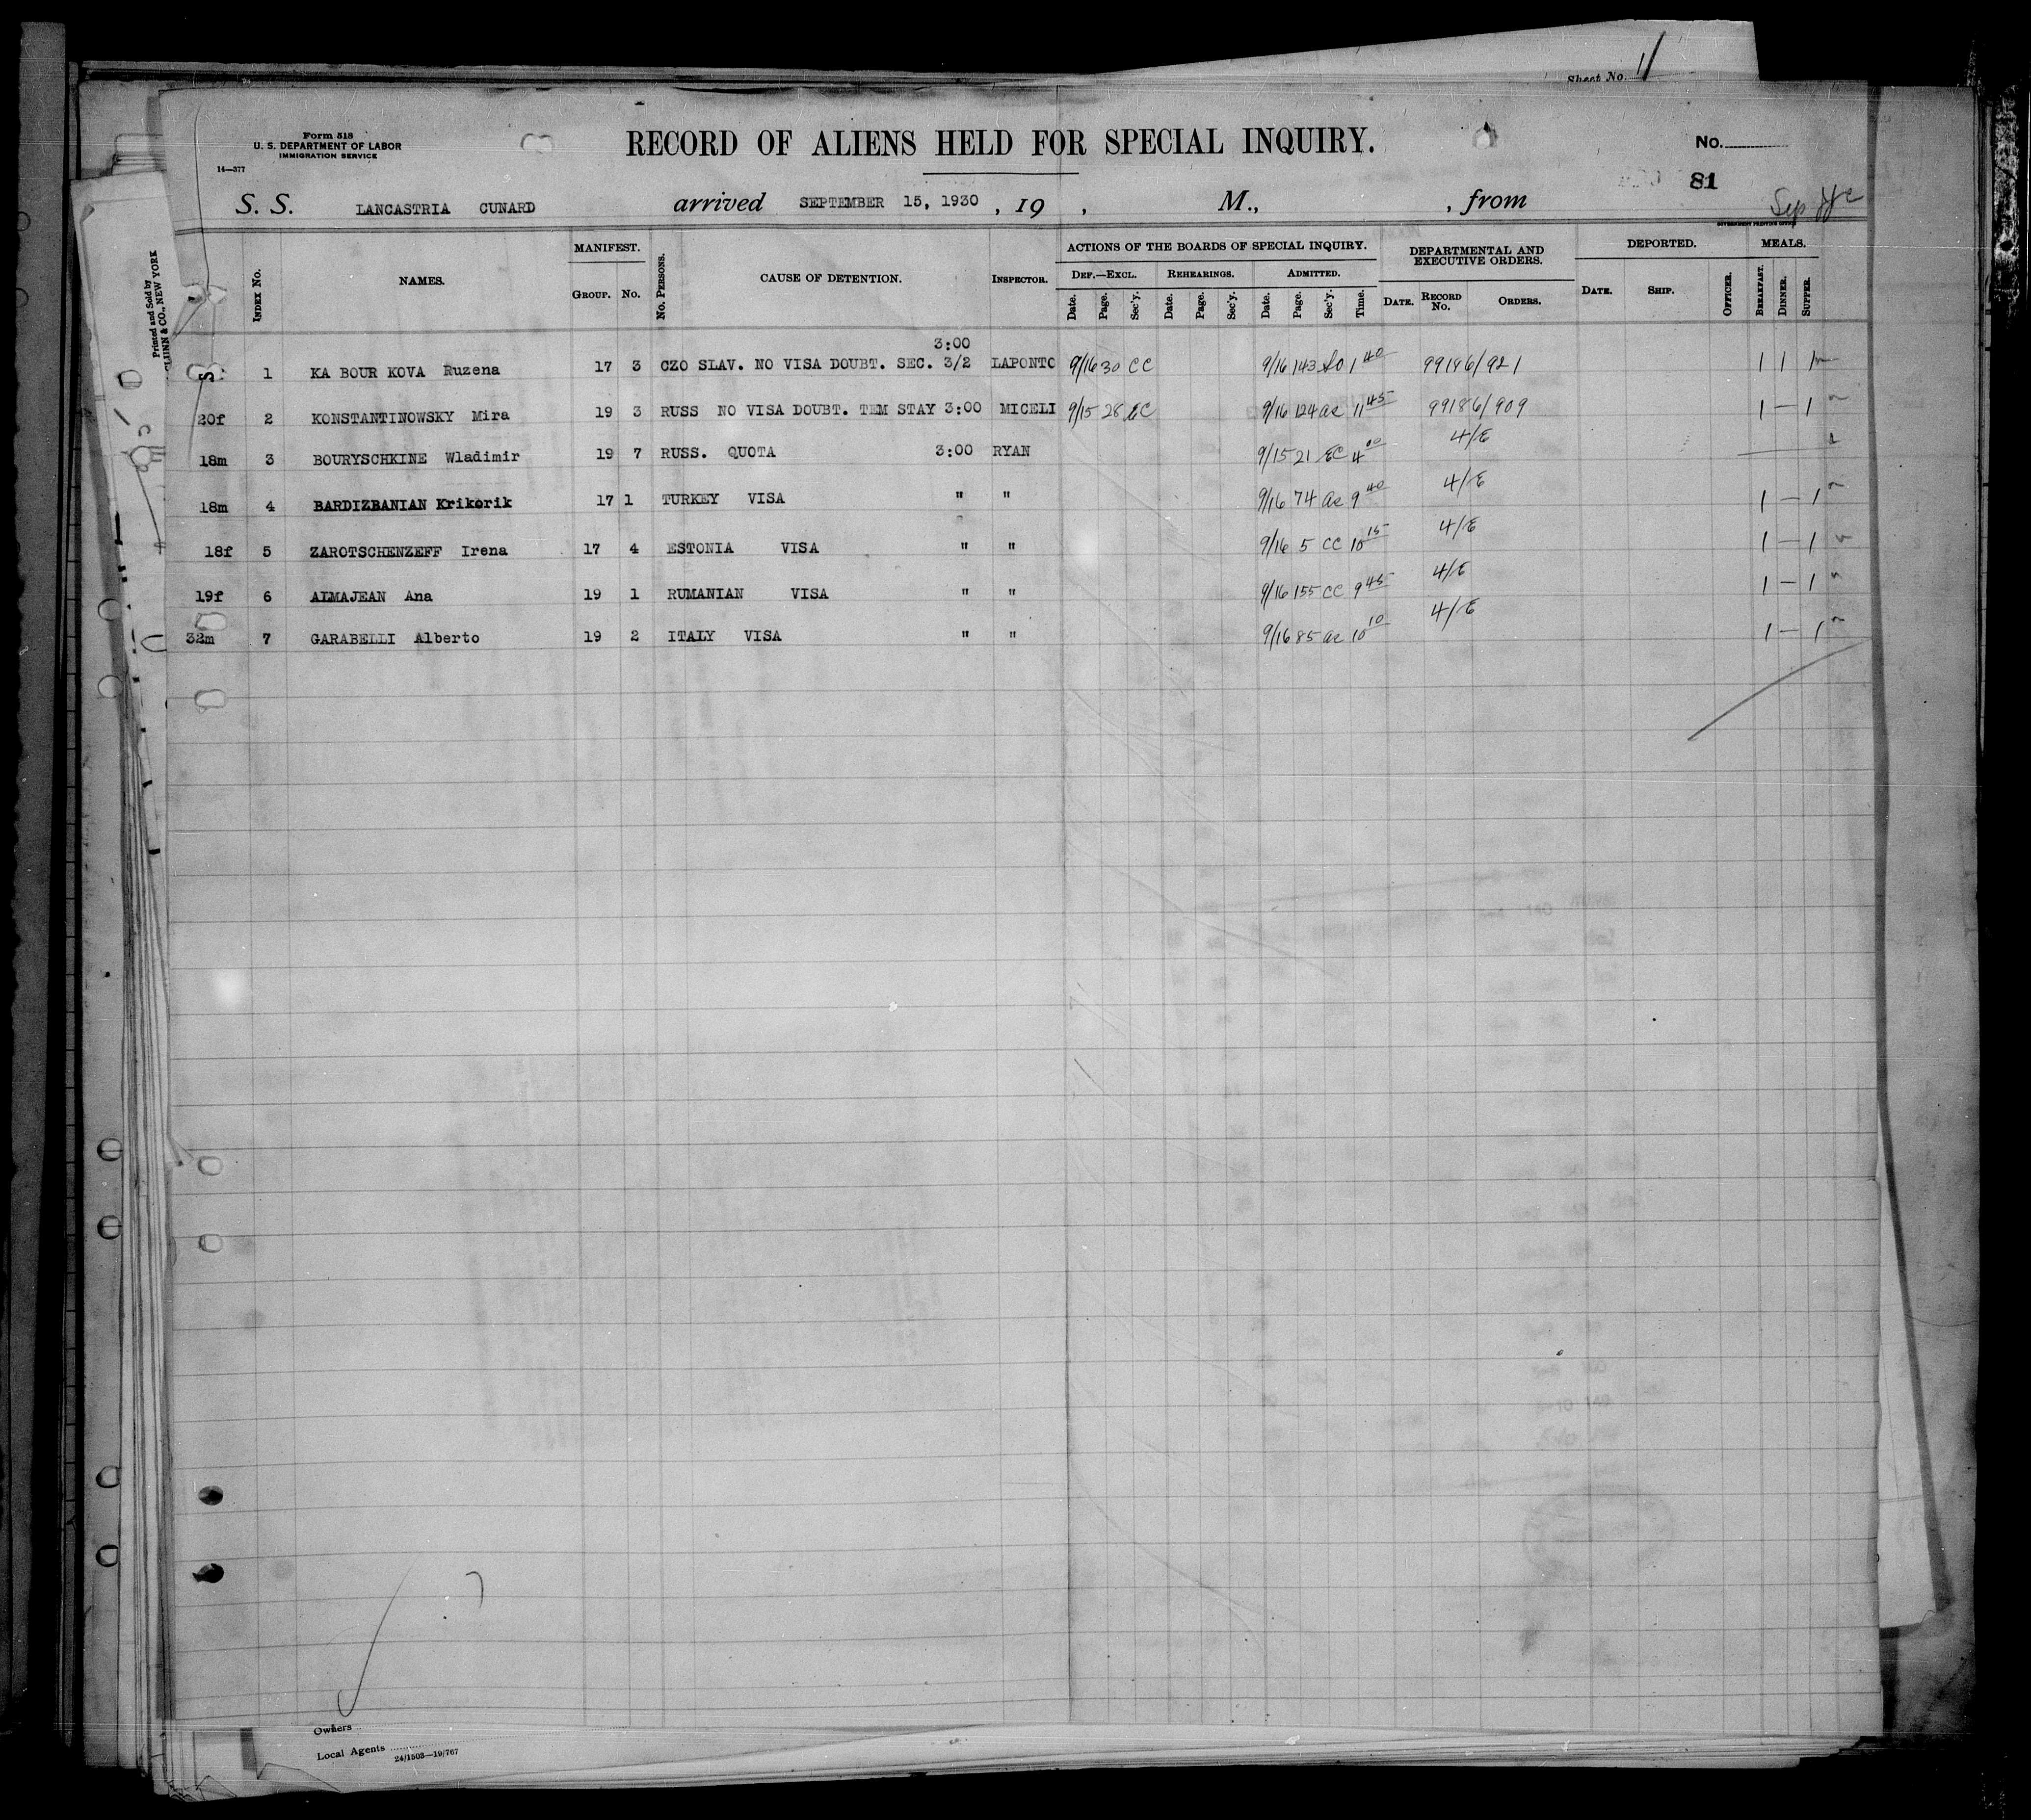 Sheet No. 11
Form 518
U. S. DEPARTMENT OF LABOR
IMMIGRATION SERVICE
14—377
RECORD OF ALIENS HELD FOR SPECIAL INQUIRY.
No.
81
S. S. LANCASTRIA CUNARD arrived SEPTEMBER 15, 1930, 19 , M., , from
GOVERNMENT PRINTING OFFICE
Printed and Sold by
CLUNN & CO., NEW YORK
INDEX No. NAMES. MANIFEST. GROUP. No. No. PERSONS. CAUSE OF DETENTION. INSPECTOR. ACTIONS OF THE BOARDS OF SPECIAL INQUIRY. DEPARTMENTAL AND EXECUTIVE ORDERS. DEPORTED. MEALS.
DEF.—EXCL. REHEARINGS. ADMITTED.
Date. Page. Sec'y. Date. Page. Sec'y. Date. Page. Sec'y. Time. DATE. RECORD No. ORDERS. DATE. SHIP. OFFICER. BREAKFAST. DINNER. SUPPER.
3:00
1 KA BOUR KOVA Ruzena 17 3 CZO SLAV. NO VISA DOUBT. SEC. 3/2 LAPONTO 9/16 30 CC 9/16 143 1 40 99186/921 1 1 1
20f 2 KONSTANTINOWSKY Mira 19 3 RUSS NO VISA DOUBT. TEM STAY 3:00 MICELI 9/15 28 EC 9/16 124 ac 11 45 99186/909 1 — 1
18m 3 BOURYSCHKINE Wladimir 19 7 RUSS. QUOTA 3:00 RYAN 9/15 21 EC 4 00 4/E
18m 4 BARDIZBANIAN Krikorik 17 1 TURKEY VISA " " 9/16 74 ac 9 40 4/E 1 — 1
18f 5 ZAROTSCHENZEFF Irena 17 4 ESTONIA VISA " " 9/16 5 CC 10 15 4/E 1 — 1
19f 6 ALMAJEAN Ana 19 1 RUMANIAN VISA " " 9/16 155 CC 9 45 4/E 1 — 1
32m 7 GARABELLI Alberto 19 2 ITALY VISA " " 9/16 85 ac 10 10 4/E 1 — 1
Owners
Local Agents
24/1503—19/767